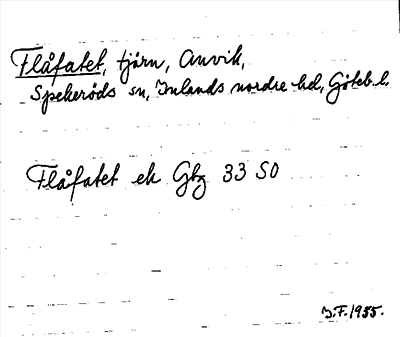 Flåfatet, tjärn, Anvik,
Spekeröds sn, Inlands nordre hd, Göteb. l.
Flåfatet ek Gbg 33 SO
I.F. 1955.